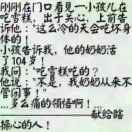 刚刚在门口看见一小孩儿在
吃雪糕，出于关心，上前告
诉他：“这么冷的天会吃坏身
体的！
小孩告诉我，他的奶奶活
了104岁！
我问：“吃雪糕吃的？”
他说：“不是，我奶奶从来不
管闲事！”
…多么痛的领悟啊！
献给瞎
操心的人！